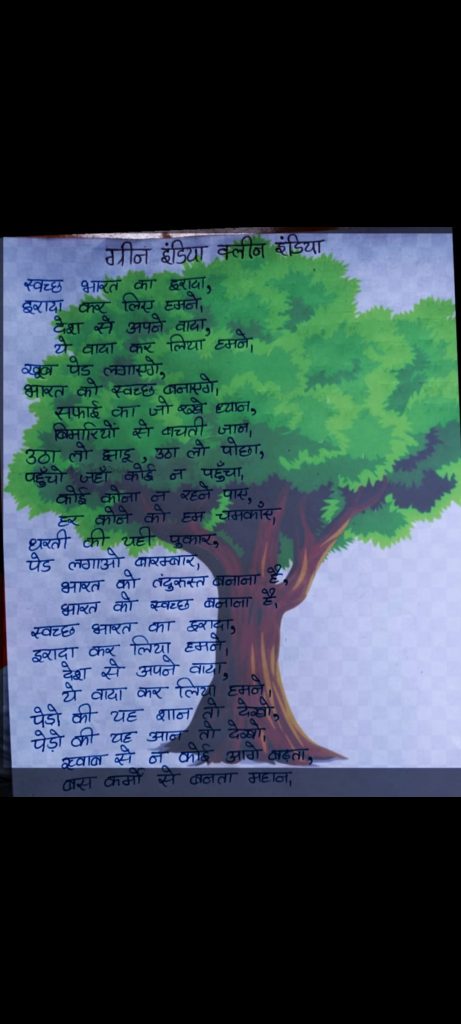 ग्रीन इंडिया क्लीन इंडिया
स्वच्छ भारत का इरादा,
इरादा कर लिए हमने,
देश से अपने वादा,
ये वादा कर लिया हमने,
खूब पेड लगाएगे,
भारत को स्वच्छ बनाएगे,
सफाई का जो रखे ध्यान,
बिमारियों से बचती जान,
उठा लो झाडू, उठा लो पोछा,
पहुँचो जहाँ कोई न पहुँचा,
कोई कोना न रहने पाए,
हर कोने को हम चमकाँए,
धरती की यही पुकार,
पेड लगाओ बारम्बार,
भारत को तंदुरुस्त बनाना है,
भारत को स्वच्छ बनाना है,
स्वच्छ भारत का इरादा,
इरादा कर लिया हमने,
देश से अपने वादा,
ये वादा कर लिया हमने,
पेड़ो की यह शान तो देखो,
पेड़ो की यह आन तो देखो,
ख्वाब से न कोई आगे बढ़ता,
बस कर्मो से बनता महान,